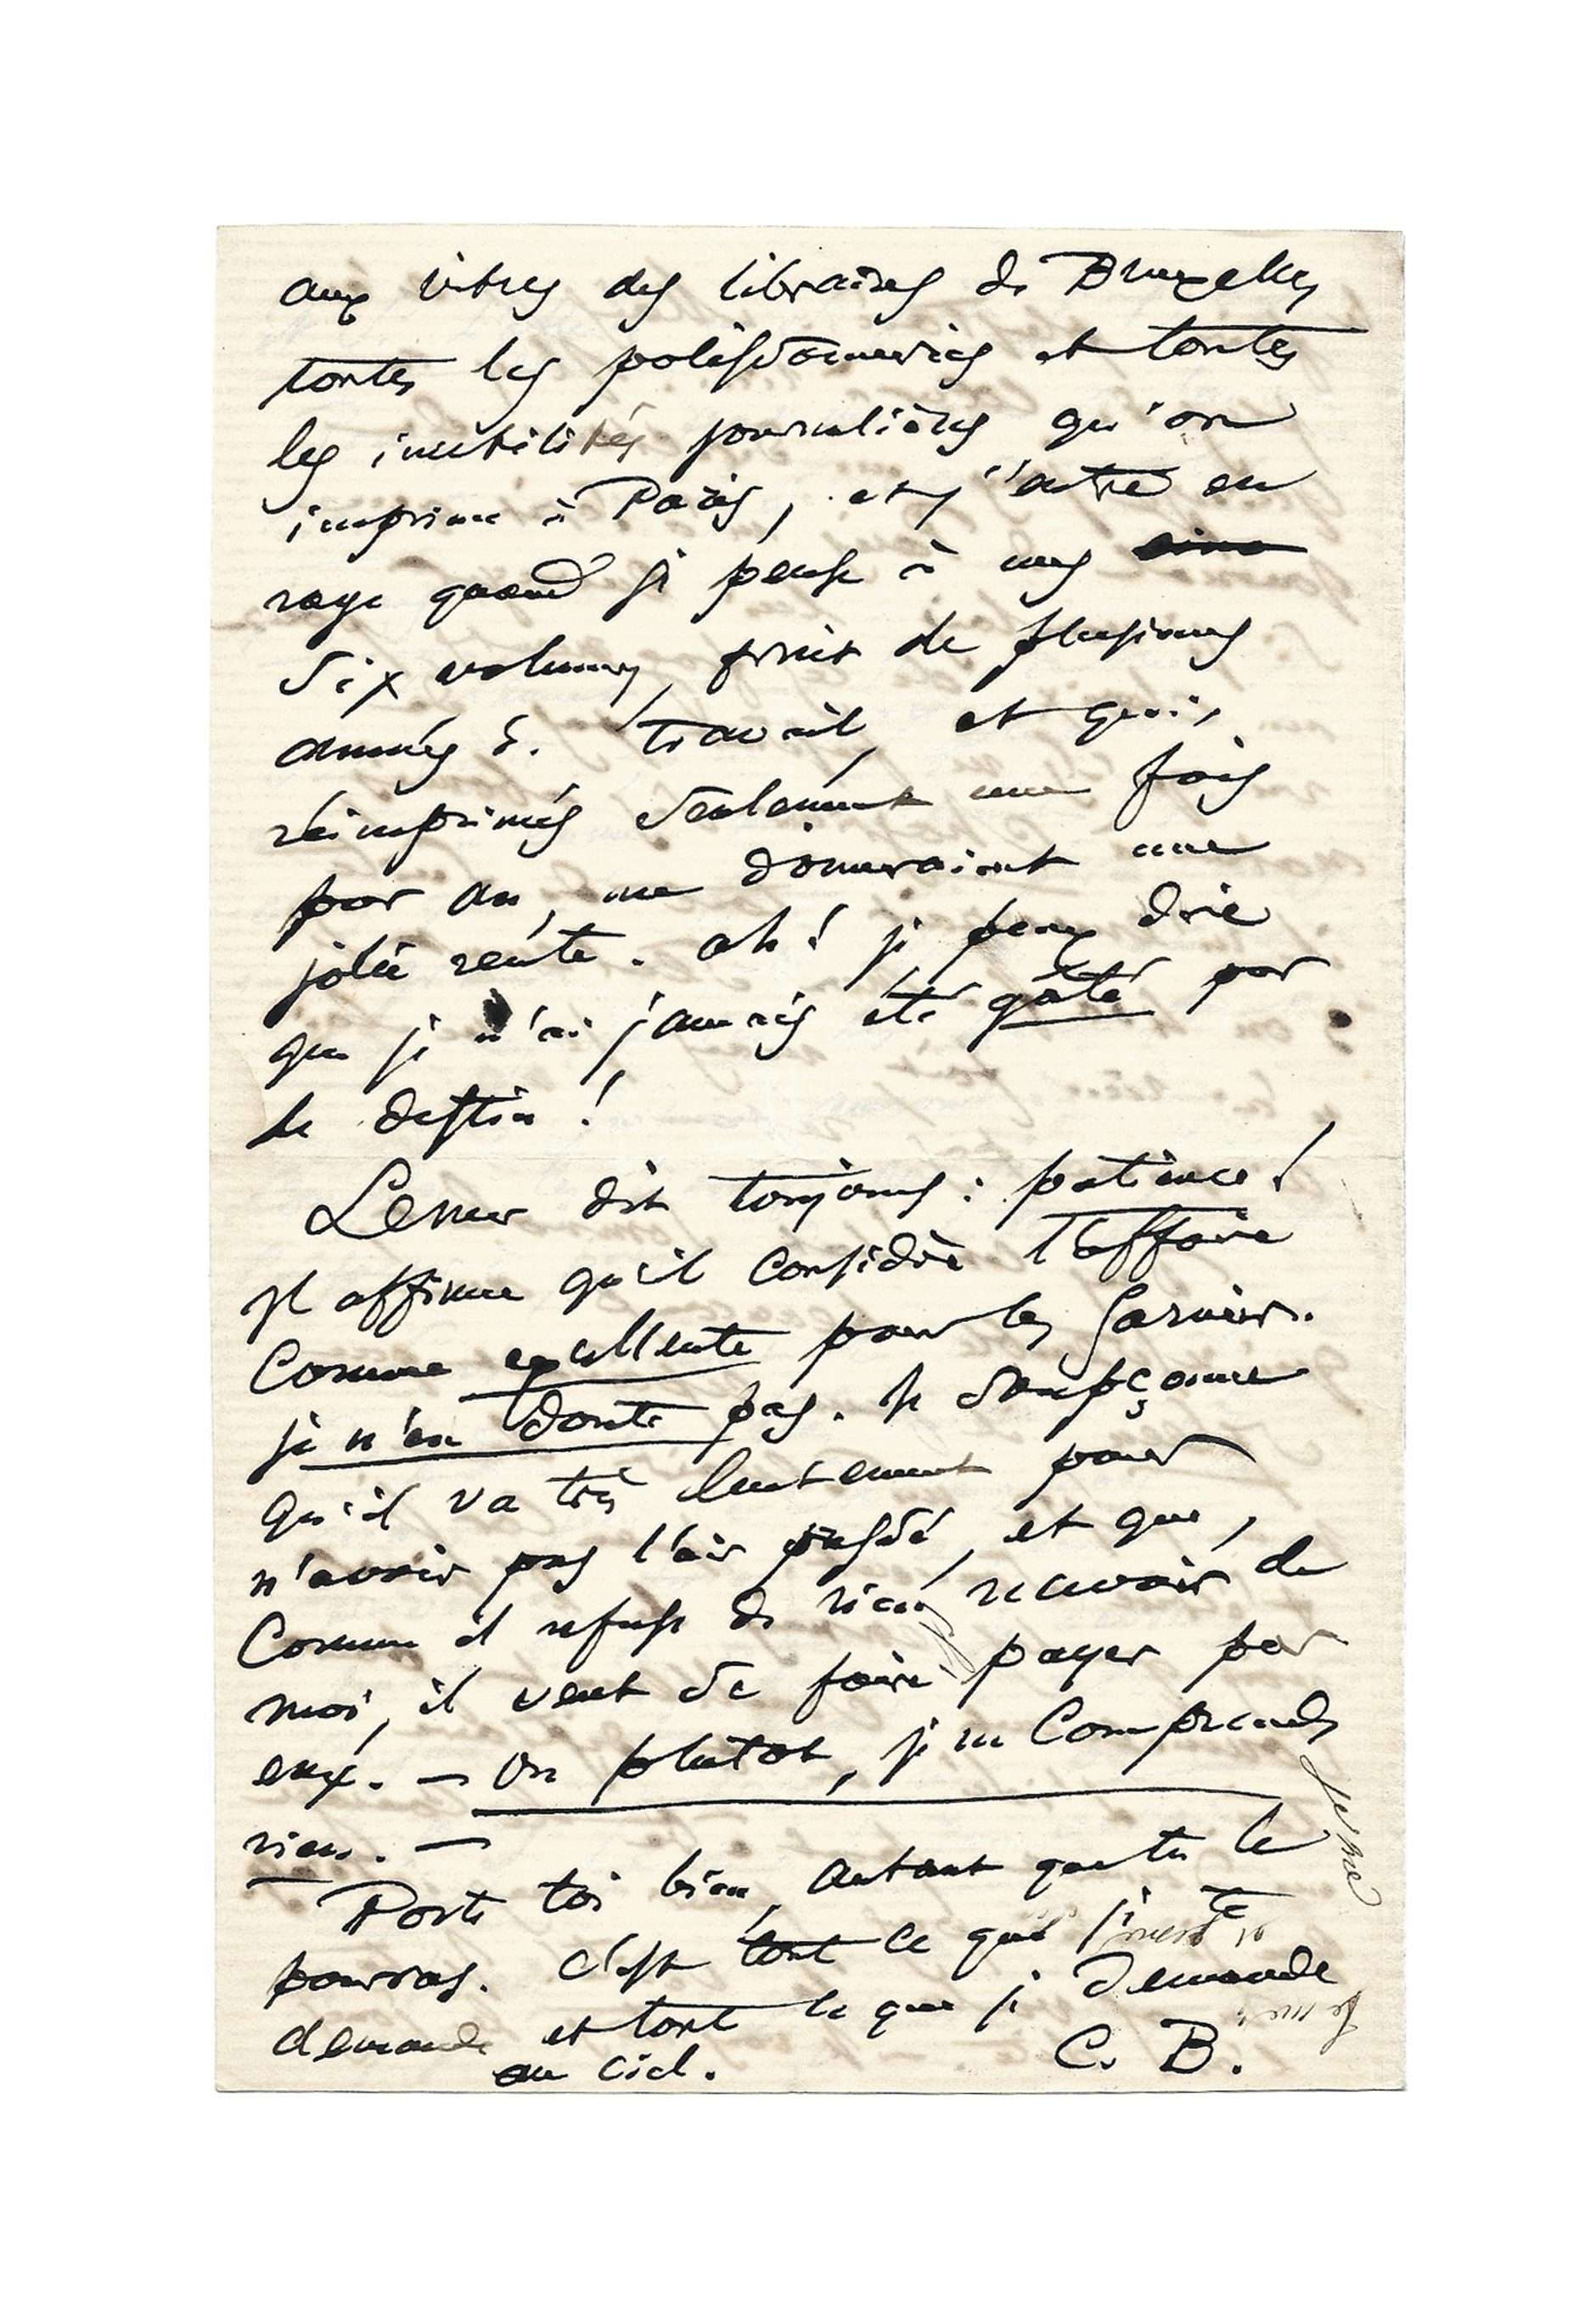 aux vitres des libraires de Bruxelles
toutes les polissonneries et toutes
les inutilités journalières qu'on
imprime à Paris, et j'entre en
rage quand je pense à mes
six volumes, fruit de plusieurs
années de travail, et qui,
réimprimés seulement une fois
par an, me donneraient une
jolie rente. ah! je peux dire
que je n'ai jamais été gâté par
le destin!
Lemer dit toujours : patience!
Il affirme qu'il considère l'affaire
comme excellente pour les Garnier.
je n'en doute pas. Je soupçonne
qu'il va très lentement pour
n'avoir pas l'air pressé, et que,
comme il refuse de rien recevoir de
moi, il veut se faire payer par
eux. — Ou plutôt, je ne comprends
rien. —
Porte toi bien, autant que tu le
pourras. C'est tout ce que je te
demande et tout ce que je demande
au ciel.
C. B.